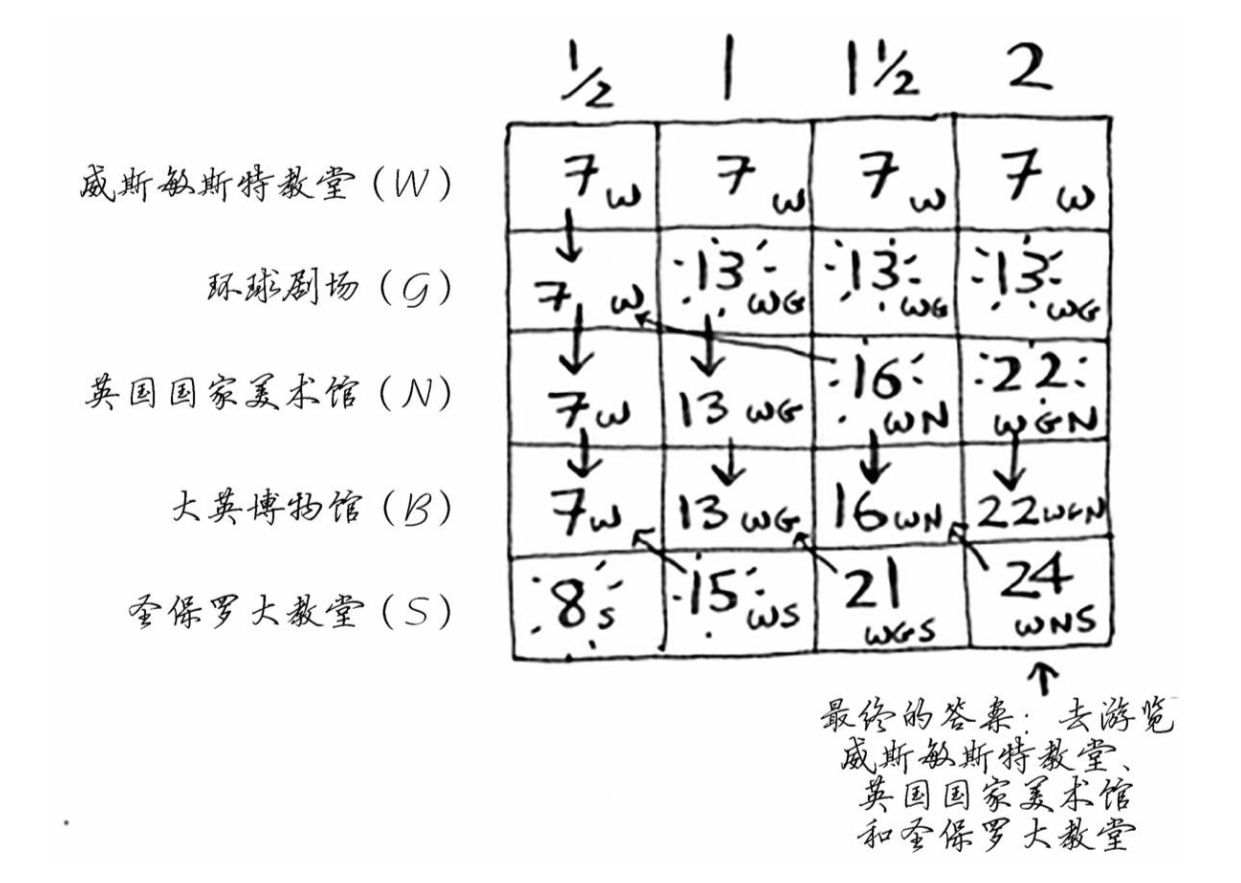 ½ 1 1½ 2
威斯敏斯特教堂（W） 7W 7W 7W 7W
环球剧场（G） 7W 13WG 13WG 13WG
英国国家美术馆（N） 7W 13WG 16WN 22WGN
大英博物馆（B） 7W 13WG 16WN 22WGN
圣保罗大教堂（S） 8S 15WS 21WGS 24WNS
最终的答案：去游览
威斯敏斯特教堂、
英国国家美术馆
和圣保罗大教堂